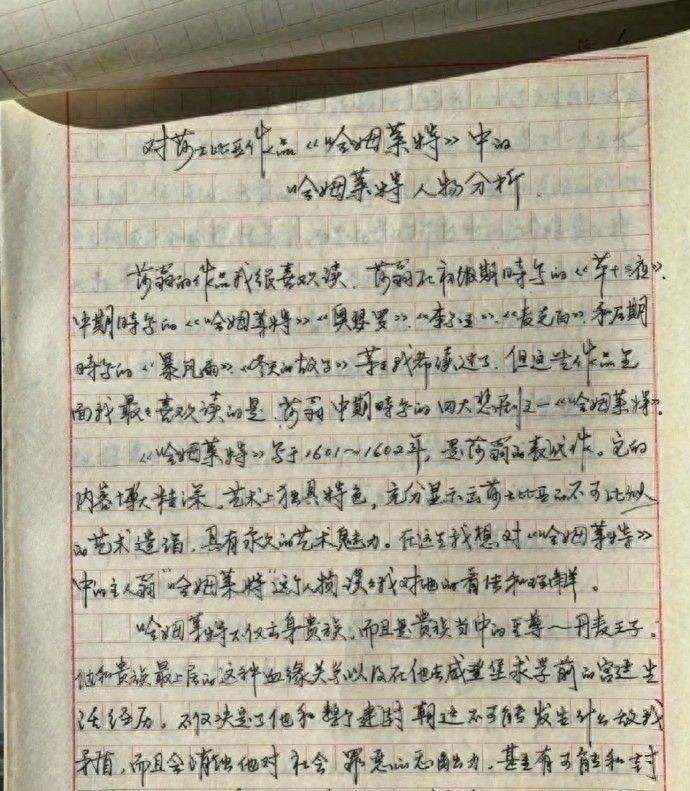 对莎士比亚作品《哈姆莱特》中的
哈姆莱特人物分析.
莎翁的作品我很喜欢读.莎翁在初级期時写的《第十二夜》.
中期時写的《哈姆莱特》《奥瑟罗》.《李尔王》.《麦克白》和后期
時写的《暴风雨》.《冬天的故事》等等我都读过了.但这些作品里
面我最最喜欢读的是.莎翁中期時写的四大悲剧之一《哈姆莱特》.
《哈姆莱特》写于1601~1602年,是莎翁的代表作。它的
内容博大精深.艺术上独具特色,充分显示出莎士比亚的不可比拟
的艺术造诣.具有永久的艺术魅力。在这里我想对《哈姆莱特》
中的主人翁"哈姆莱特"这个人物谈谈我对他的看法和理解。
哈姆莱特不仅出身贵族.而且是贵族当中的至尊~丹麦王子.
他和贵族最上层的这种血缘关系以及在他去威登堡求学前的宫廷生
活经历.不仅决定了他和整个封建朝廷不可能发生什么敌我
矛盾,而且会消蚀他对社会罪恶的 力.甚至有可能和封